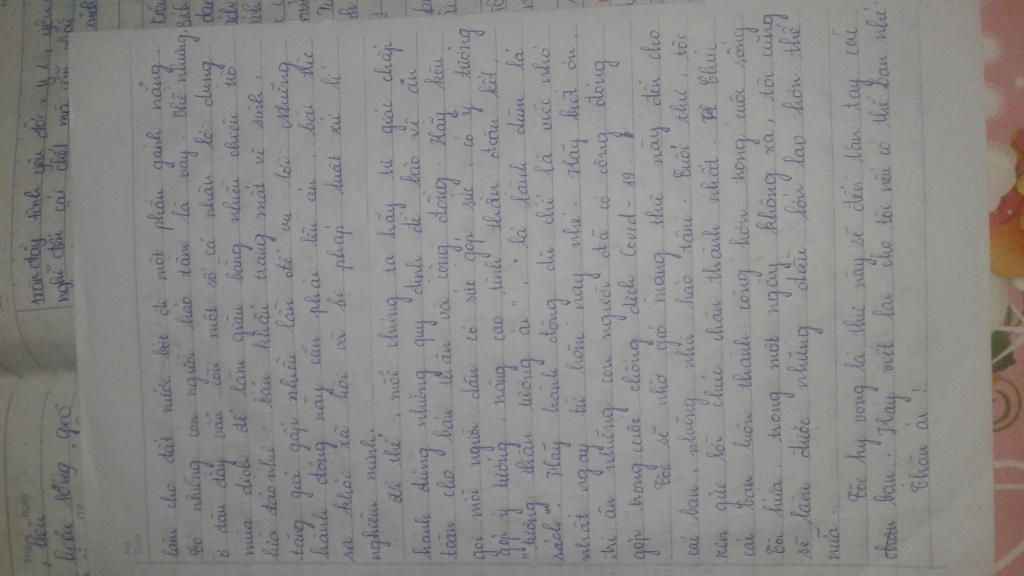 làm cho đất nước bớt đi một phần gánh nặng.
Có những con người hào tâm là vậy, thế nhưng
ở đâu đây vẫn còn một số cá nhân lợi dụng
mùa dịch để làm giàu bằng nhiều chiêu trò
lừa đảo như: bán khẩu trang mất vệ sinh,
tăng giá gấp nhiều lần để vụ lợi. Những
hành động này cần phải lên án, bài trừ
ra khỏi xã hội và bị pháp luật xử lí
nghiêm minh.
Vì thế, mỗi chúng ta hãy tự giác chấp
hành đúng những quy định để bảo vệ an
toàn cho bản thân và cộng đồng. Hãy kêu
gọi mọi người dân có sức góp sức, có ý tưởng
góp ý tưởng, nâng cao tinh thần đoàn kết,
"tương thân tương ái", "lá lành đùm lá
rách". Hãy hành động dù chỉ là việc nhỏ
nhất ngay từ hôm nay nhé. Hãy biết ơn,
tri ân những con người đã có công đóng
góp trong cuộc chống dịch Covid-19.
Tôi sẽ nhờ gió mang thư này đến cho
các bạn, những nhà hảo tâm. Cuối thư, tôi
xin gửi lời chúc chân thành nhất. Chúc
các bạn luôn thành công hơn trong cuộc sống.
Tôi hứa, trong một ngày không xa, tôi cũng
sẽ làm được những điều lớn lao hơn thế
nữa.
Tôi hy vọng lá thư này sẽ đến tận tay các
bạn. Hãy viết lại cho tôi nếu có thể bạn nhé.
Thân ái!